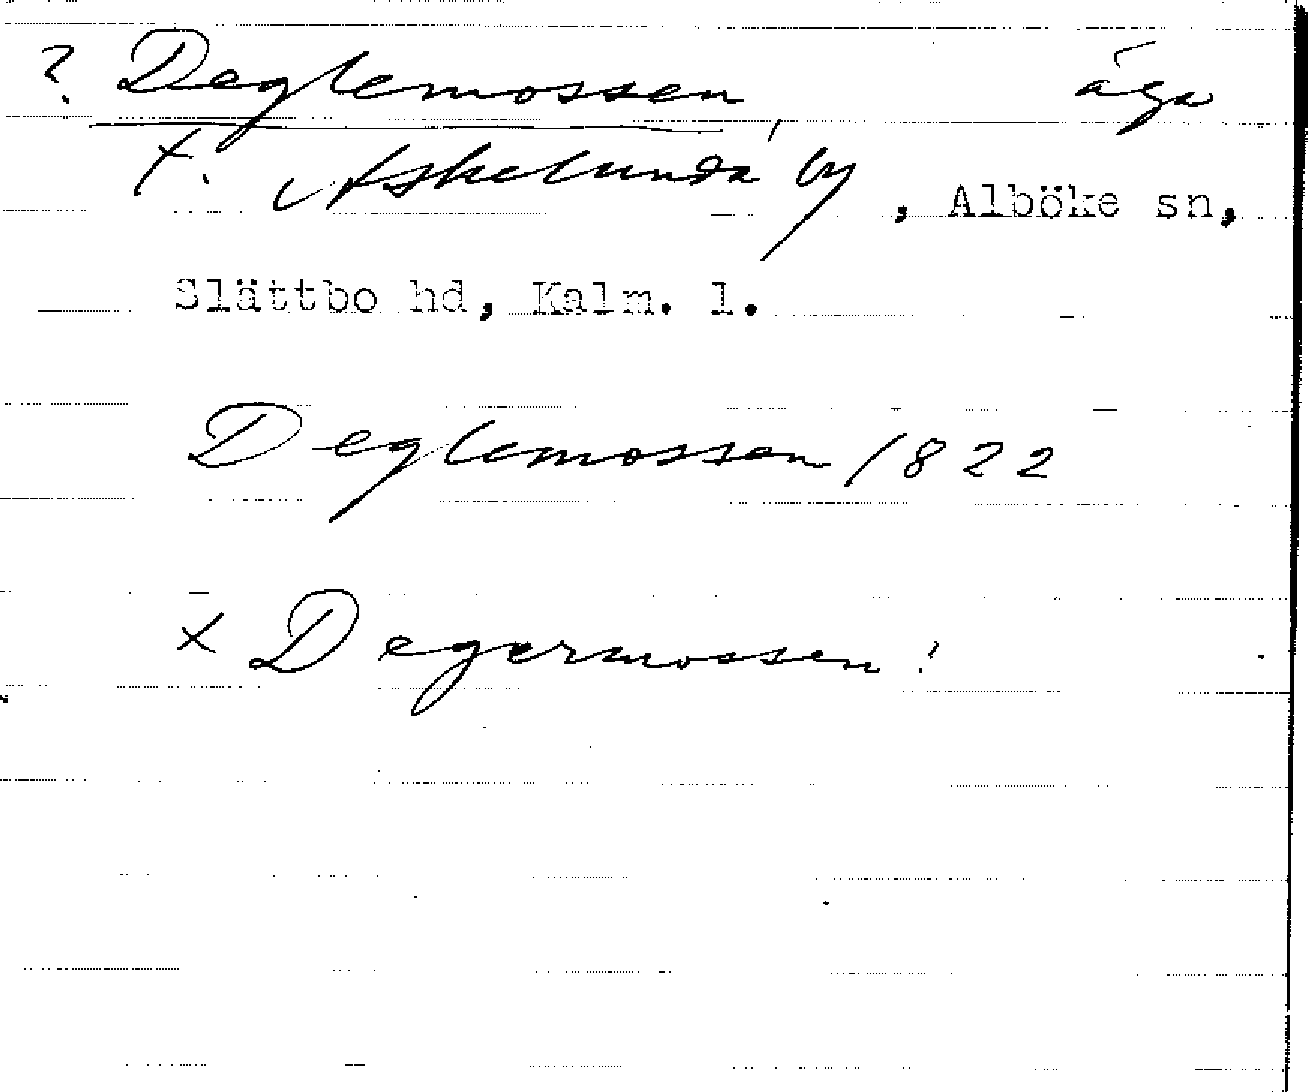 ? Deglemossen äga
t. Askelunda by, Alböke sn,
Slättbo hd, Kalm. l.
Deglemossen 1822
x Degermossen!